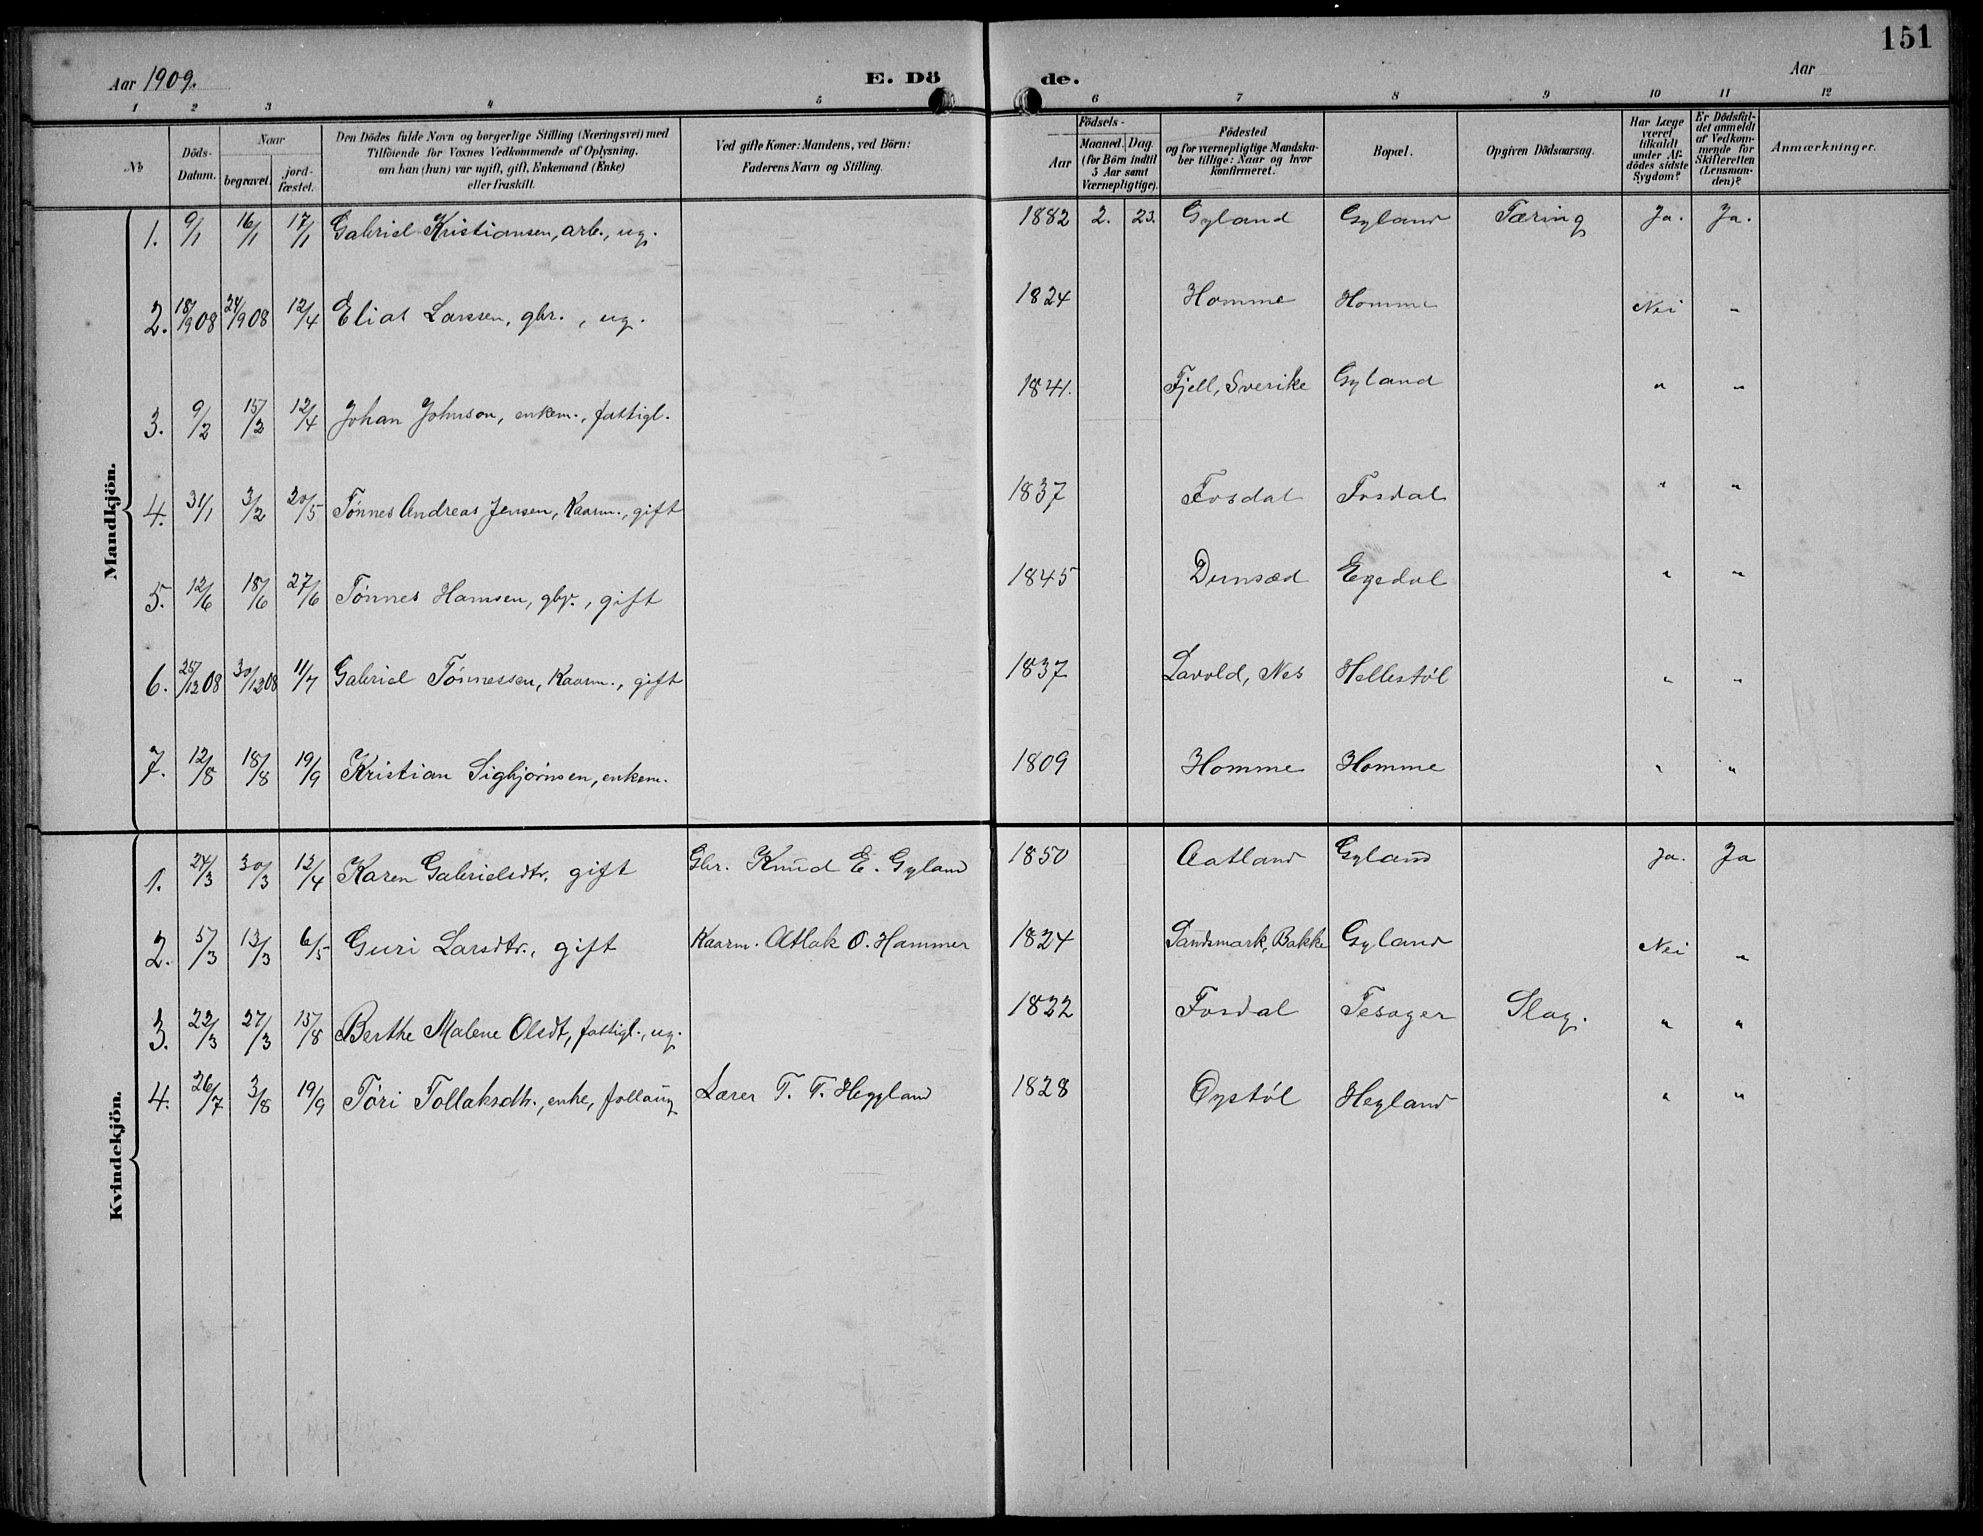 151
Aar 1909. E. Dö de. Aar
1 2 3 4 5 6 7 8 9 10 11 12
№ Döds-Datum. Naar begravet. jord-fæstet. Den Dödes fulde Navn og borgerlige Stilling (Næringsvei) med Tilföiende for Voxnes Vedkommende af Oplysning, om han (hun) var ugift, gift, Enkemand (Enke) eller fraskilt. Ved gifte Koner: Mandens, ved Börn: Faderens Navn og Stilling. Födsels- Aar Maaned. Dag. (for Börn indtil 5 Aar samt Værnepligtige). Födested og for værnepligtige Mandska-ber tillige: Naar og hvor konfirmeret. Bopæl. Opgiven Dödsaarsag. Har Læge været tilkaldt under Af-dödes sidste Sygdom? Er Dödsfal-det anmeldt af Vedkom-mende for Skifteretten (Lensman-den)? Anmærkninger.
Mandkjön.
1. 9/1 16/1 17/1 Gabriel Kristiansen, arb., ug. 1882 2. 23. Gyland Gyland Tæring Ja. Ja.
2. 18/9 08 24/9 08 12/4 Elias Larssen, gbr., ug. 1824 Homme Homme Nei "
3. 9/2 15/2 12/4 Johan Johnson, enkem., fattigl. 1841. Fjell, Sverike Gyland " "
4. 31/1 3/2 20/5 Tønnes Andreas Jensen, Kaarm., gift 1837 Fosdal Fosdal " "
5. 12/6 18/6 27/6 Tønnes Hansen, gbr., gift 1845 Dunsæd Egedal " "
6. 25/12 08 30/12 08 11/7 Gabriel Tønnessen, Kaarm., gift 1837 Lavold, Nes Hellestøl " "
7. 12/8 18/8 19/9 Kristian Sigbjørnsen, enkem. 1809 Homme Homme " "
Kvindekjön.
1. 24/3 30/3 12/4 Karen Gabrielsdtr. gift Gbr. Knud E. Gyland 1850 Aatland Gyland Ja. Ja
2. 5/3 13/3 6/5 Guri Larsdtr., gift Kaarm. Atlak O. Hammer 1824 Sandsmark, Bakke Gyland Nei "
3. 22/3 27/3 15/8 Berthe Malene Olsdt, fattigl., ug. 1822 Fosdal Tesager Slag. " "
4. 26/7 3/8 19/9 Tóri Tollaksdtr., enke, Lærer T. T. Heggland 1828 Øystøl Hegland " "